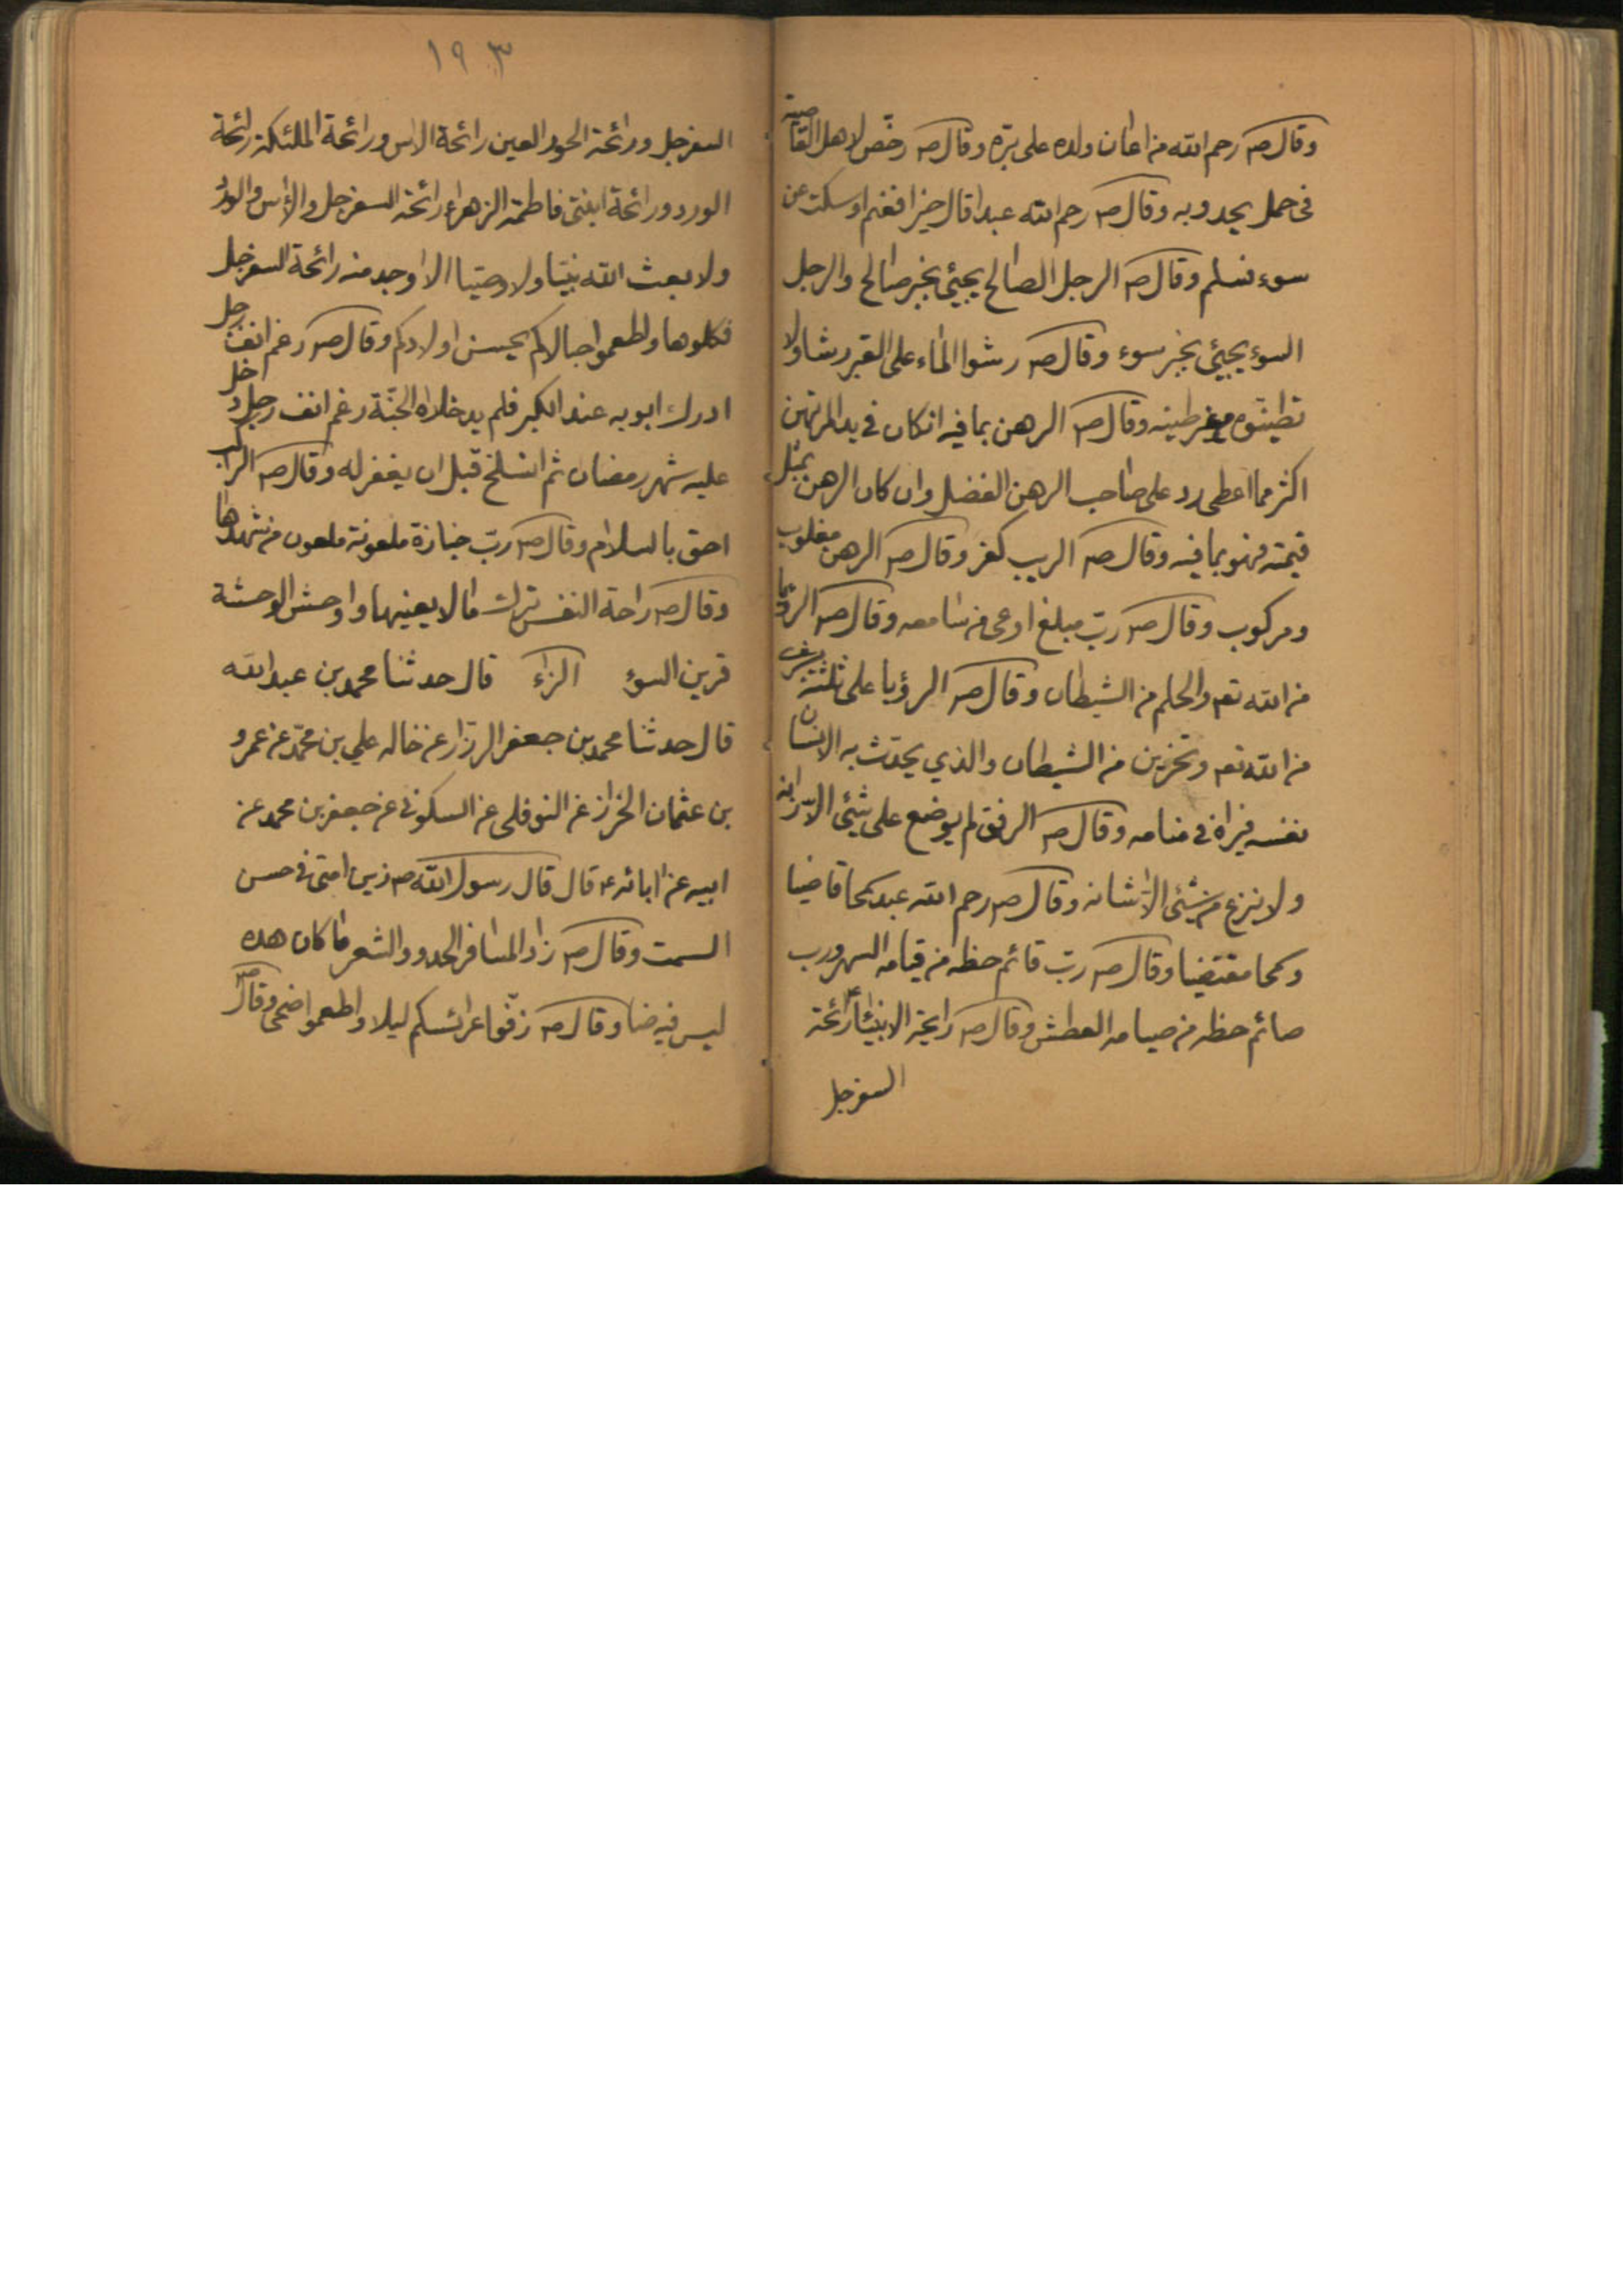 وقال صه رحم الله من اعان ولده على برّه وقال صه رخّص لاهل القاصية
فى حمل يحدو به وقال صه رحم الله عبدا قال خيرا فغنم او سكت عن
سوء فسلم وقال صه الرجل الصالح يجيئ بخبر صالح والرجل
السوء يجيئ بخبر سوء وقال صه رشوا الماء على القبر رشا ولا
تطينوه من غير طينه وقال صه الرهن بما فيه انكان في يد المرتهن
اكثر مما اعطى رد على صاحب الرهن الفضل وان كان الرهن بمثل
قيمته فهو بما فيه وقال صه الريب كفر وقال صه الرهن مغلوب
ومركوب وقال صه ربّ مبلغ اوعى من سامعه وقال صه الرؤيا
من الله تعه والحلم من الشيطان وقال صه الرؤيا على ثلثة
من الله تعه وتحزين من الشيطان والذي يحدّث به الانسان
نفسه فيراه في منامه وقال صه الرفق لم يوضع على شيئ الا زانه
ولا نزع من شيئ الا شانه وقال صه رحم الله عبد سمحا قاضيا
وسمحا مقتضيا وقال صه ربّ قائم حظه من قيامه السهر ورب
صائم حظه من صيامه العطش وقال صه رايحة الانبياء رائحة
السفرجل
١٩٣
السفرجل ورائحة الحور العين رائحة الاس ورائحة الملئكة رائحة
الورد ورائحة ابنتى فاطمة الزهراء رائحة السفرجل والاس والورد
ولا بعث الله نبيّا ولا وصيّا الا وجد منه رائحة السفرجل
فكلوها واطعموا حبالاكم يحسن اولادكم وقال صه رغم انف رجل
ادرك ابويه عند الكبر فلم يدخلاه الجنّة رغم انف رجل دخل
عليه شهر رمضان ثم انسلخ قبل ان يغفر له وقال صه الراكب
احق بالسلام وقال صه ربّ جنازة ملعونة ملعون من شهدها
وقال صه راحة النفس ترك ما لا يعنيها واوحش الوحشة
قرين السوء الزاء قال حدثنا محمد بن عبد الله
قال حدثنا محمد بن جعفر الرزاز عن خاله علي بن محمّد عن عمرو
بن عثمان الخزاز عن النوفلى عن السكونى عن جعفر بن محمد عن
ابيه عن ابائه ع قال قال رسول الله صه زين امتى فى حسن
السمت وقال صه زاد المسافر الحدو والشعر ما كان هده
ليس فيه خنا وقال صه زفّوا عرائسكم ليلا واطعموا ضحى وقال صه